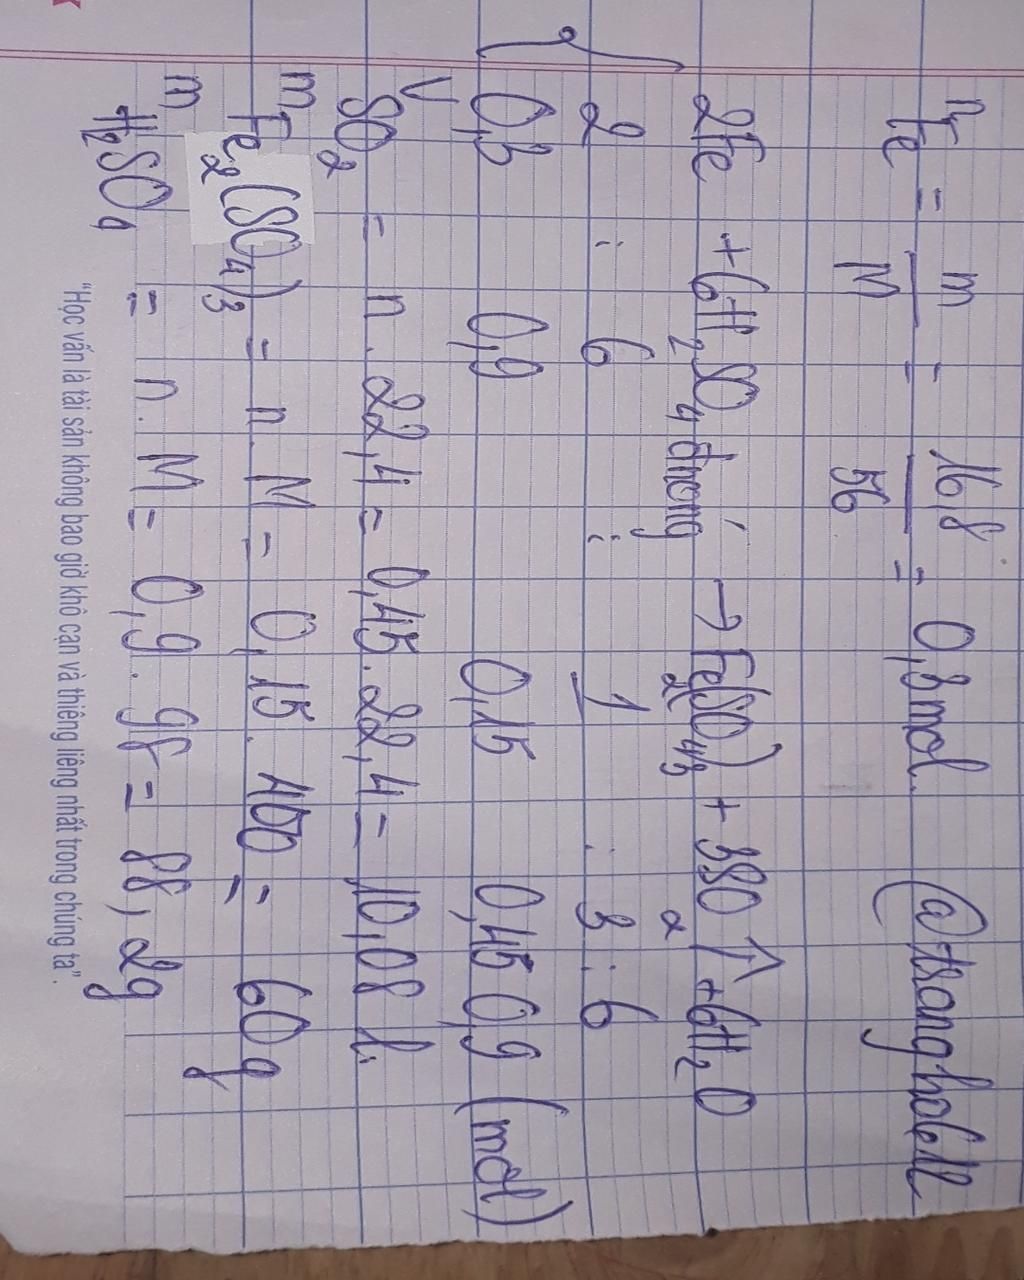 n Fe = m/M = 16,8/56 = 0,3 mol. @tranghole11
2Fe + 6H₂SO₄ đnóng → Fe₂(SO₄)₃ + 3SO₂↑ + 6H₂O
2 : 6 : 1 : 3 : 6
0,3 0,9 0,15 0,45 0,9 (mol)
V SO₂ = n . 22,4 = 0,45 . 22,4 = 10,08 l.
m Fe₂(SO₄)₃ = n . M = 0,15 . 400 = 60g
m H₂SO₄ = n . M = 0,9 . 98 = 88,2g
"Học vấn là tài sản không bao giờ khô cạn và thiêng liêng nhất trong chúng ta".